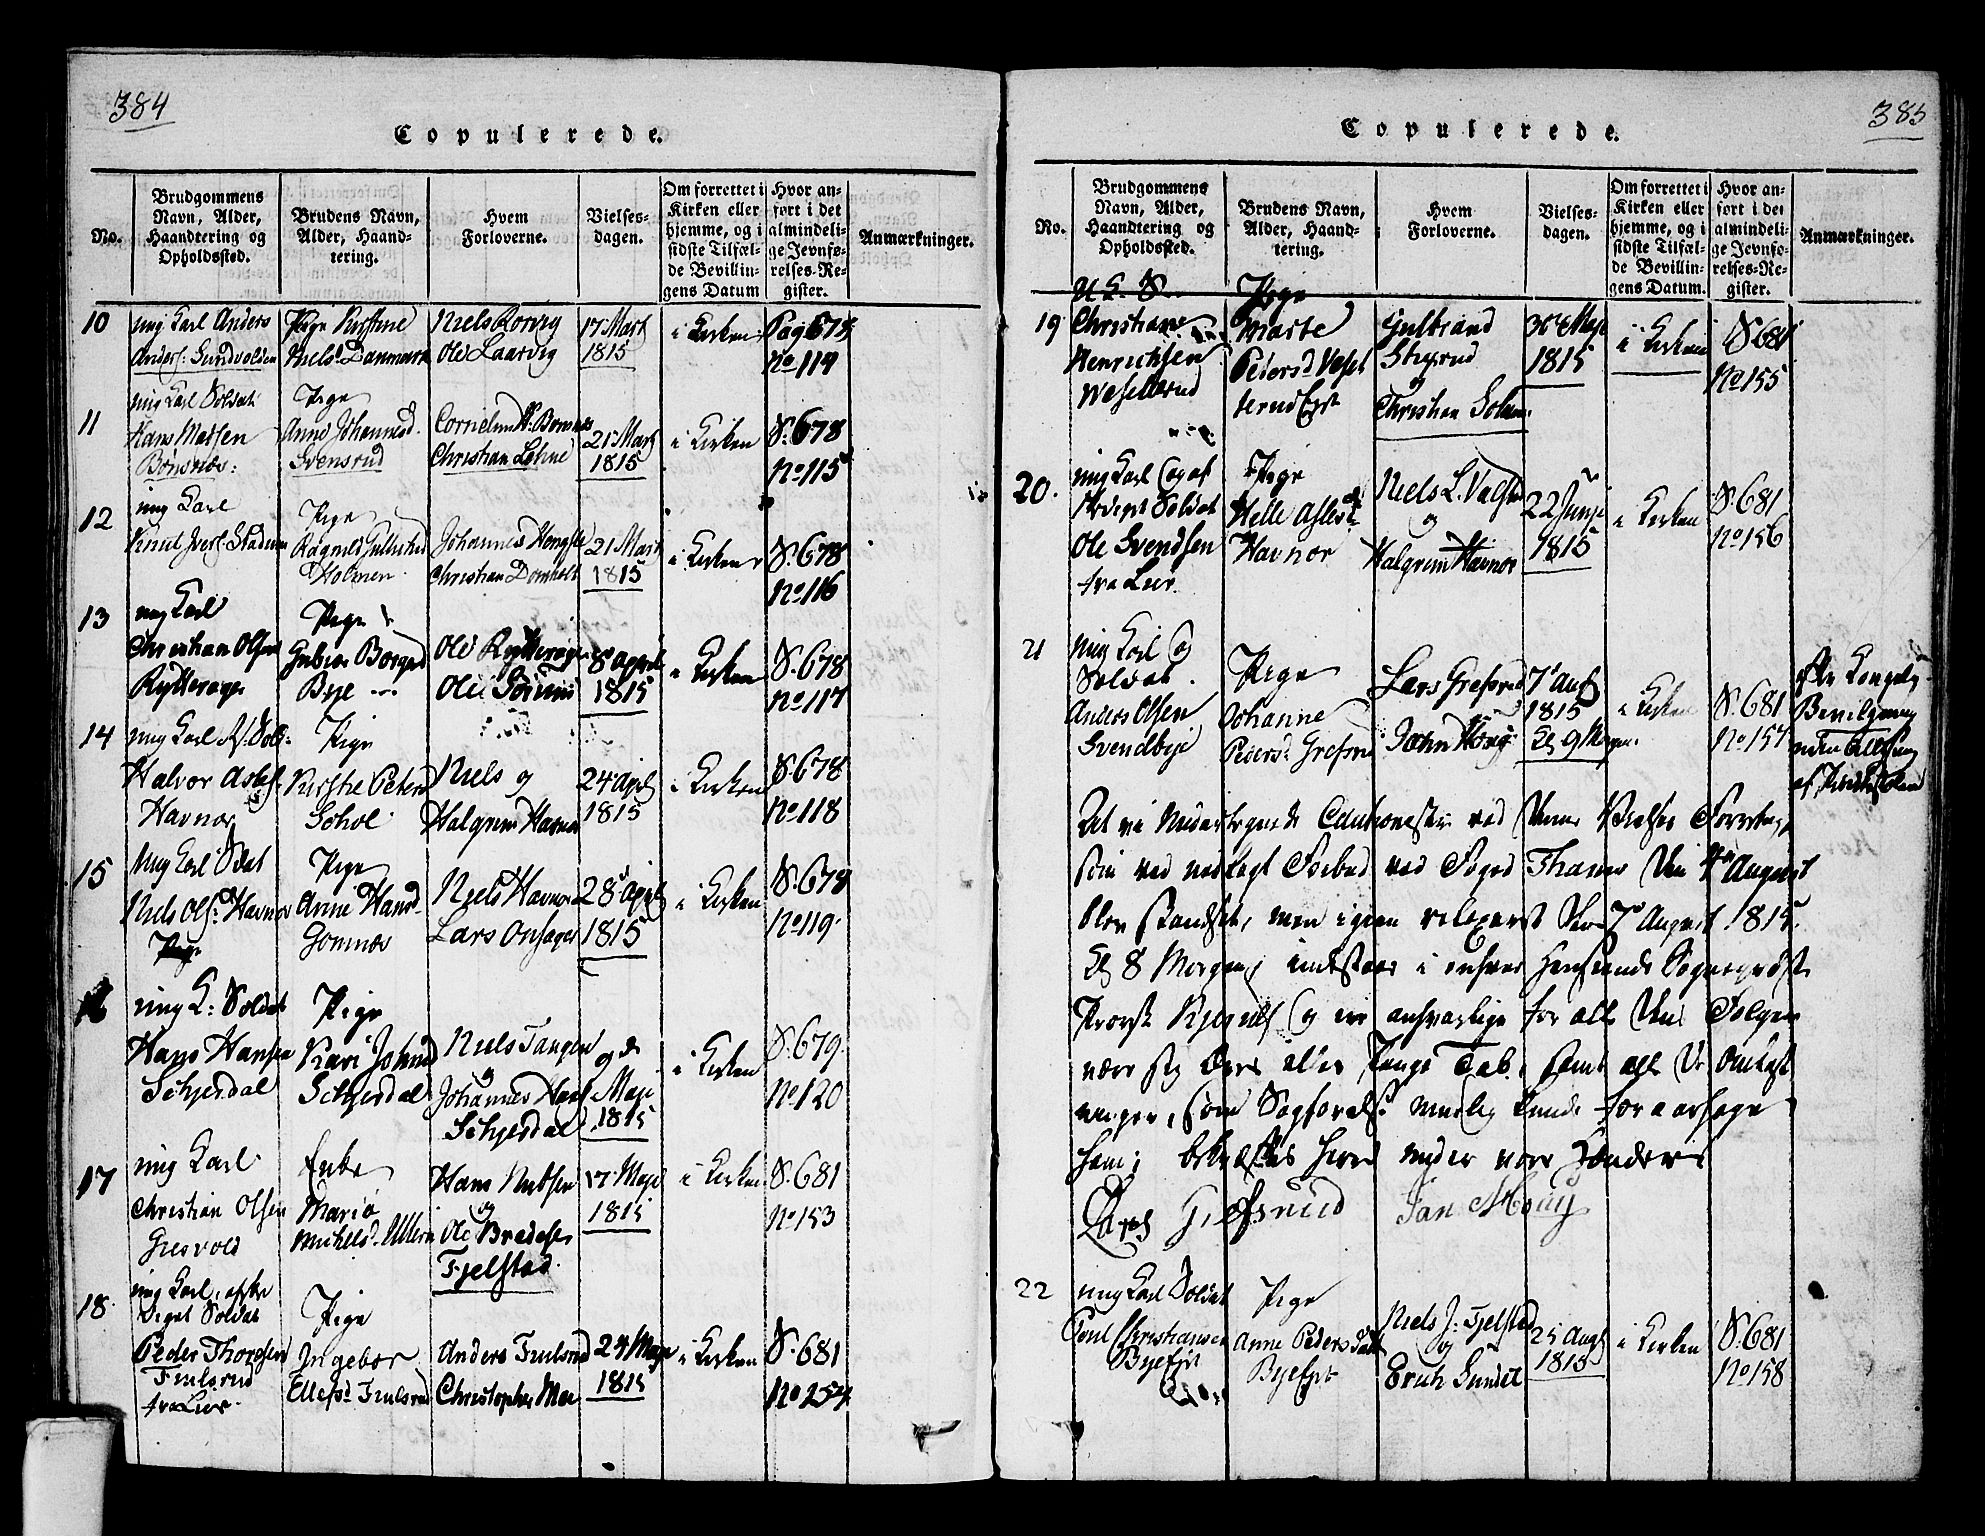 384
Copulerede.
No.
Brudgommens
Navn, Alder,
Haandtering og
Opholdssted.
Brudens Navn,
Alder, Haand-
tering.
Hvem
Forloverne.
Vielses-
dagen.
Om forrettet i
Kirken eller
hjemme, og i
sidste Tilfæl-
de Bevillin-
gens Datum
Hvor an-
fort i det
almindeli-
ge Jevnfø-
relses-Re-
gister.
Anmærkninger.
10
ung Karl Anders
Anders. Sundvolden
Pige Kirstine
Niels. Danmark
Niels Rorvig
Ole Laarvig
17 Mart
1815
i Kirken
Pag 678
No 114
11
ung Karl Soldat
Hans Madsen
Bønsnæs:
Pige
Anne Johannesd.
Svensrud
Christian Lehne
21 Mart
1815
i Kirken
S. 678
No 115
12
ung Karl
Knud Ivers.
Pige
Holmen
Johannes
Christian
21 Mart
1815
i Kirken
S. 678
No 116
13
ung Karl
Christian Olsen
Rytterager
Pige
Bye
Ole Rytterager
Ole
8 April
1815
i Kirken
S. 678
No 117
14
ung Karl
Halvor
Havnor
Pige
Kirstie Peters
Sohol
Niels og
Halgrim Havnor
24 April
1815
i Kirken
S. 678
No 118
15
ung Karl Soldat
Niels Ols. Havnor
Pige
Anne Hansd.
Gomnæs
Niels Havnor
Lars Onsager
28 April
1815
i Kirken
S. 678
No 119.
16
ung K. Soldat
Hans Hansen
Schjerdal
Pige
Kari Johnsd
Schjerdal
Niels Tangen
og
Johannes
Schjerdal
9de
Maje
1815
i Kirken
S. 679.
No 120
17
ung Karl
Christian Olsen
Gresvold
Enke
Maria
Michels. Ullern
Hans Knudsen
og
Ole
Fjelstad
17 Maje
1815
i Kirken
S. 681
No 153
18.
ung Karl, afske
diget Soldat
Peder Thorgsen
Fiulsrud
fra Lier
Pige
Ingebor
Ellefsd Fiulsrud
Anders Fiulsrud
Christopher Moe
24 Maje
1815
i Kirken
S. 681
No 254
385
Copulerede.
No.
Brudgommens
Navn, Alder,
Haandtering og
Opholdssted.
Brudens Navn,
Alder, Haand-
tering.
Hvem
Forloverne.
Vielses-
dagen.
Om forrettet i
Kirken eller
hjemme, og i
sidste Tilfæl-
de Bevillin-
gens Datum.
Hvor an-
fort i det
almindeli-
ge Jevnfø-
relses-Re-
gister.
Anmærkninger.
19
Christian
Henrichsen
Weselterud
Pige
Marte
Pedersd Vesel
terud Ejet
Gulbrand
og
Christian
30te Maje
1815
i Kirken
S. 681
No 155
20.
ung Karl og af
skediget Soldat
Ole Svendsen
fra Lier
Pige
Helle
Havnor
Niels L.
og
Halgrim Havnor
22 Junii
1815
i Kirken
S. 681
No 156
21
ung Karl og
Soldat.
Anders Olsen
Svendbye
Pige
Johanne
Pedersd. Grefsrud
Lars Grefsrud
John
7de Aug
1815
Kl 9 Morgen
i Kirken
S. 681
No 157
efter Kongelig
Bevilgning
uden Tillysning
af Prædikestolen
At vi Undertegnede Cautionister ved denne Vielses
som ved nedlagt Forbud ved Foged Thams den 4de August
blev standset, men igien relaxeret den 7de August 1815.
Kl 8 Morgen, indestaar i enhver Henseende Sogneprest
Provst og ere ansvarlige for alle den Følger
være sig Æres eller Penge Tab, samt alle de Omkost
ninger, som Sagførelse muelig kunde foraarsage
ham; bekræftes herved under vore Hænder.
Lars Grefsrud
22
ung Karl Soldat
Poul Christiansen
Byeejet
Pige
Anne Pedersdatt
Byeejet
Niels J. Fjelstad
og
Erich Sundet
25 Aug
1815
i Kirken
S. 681
No 158